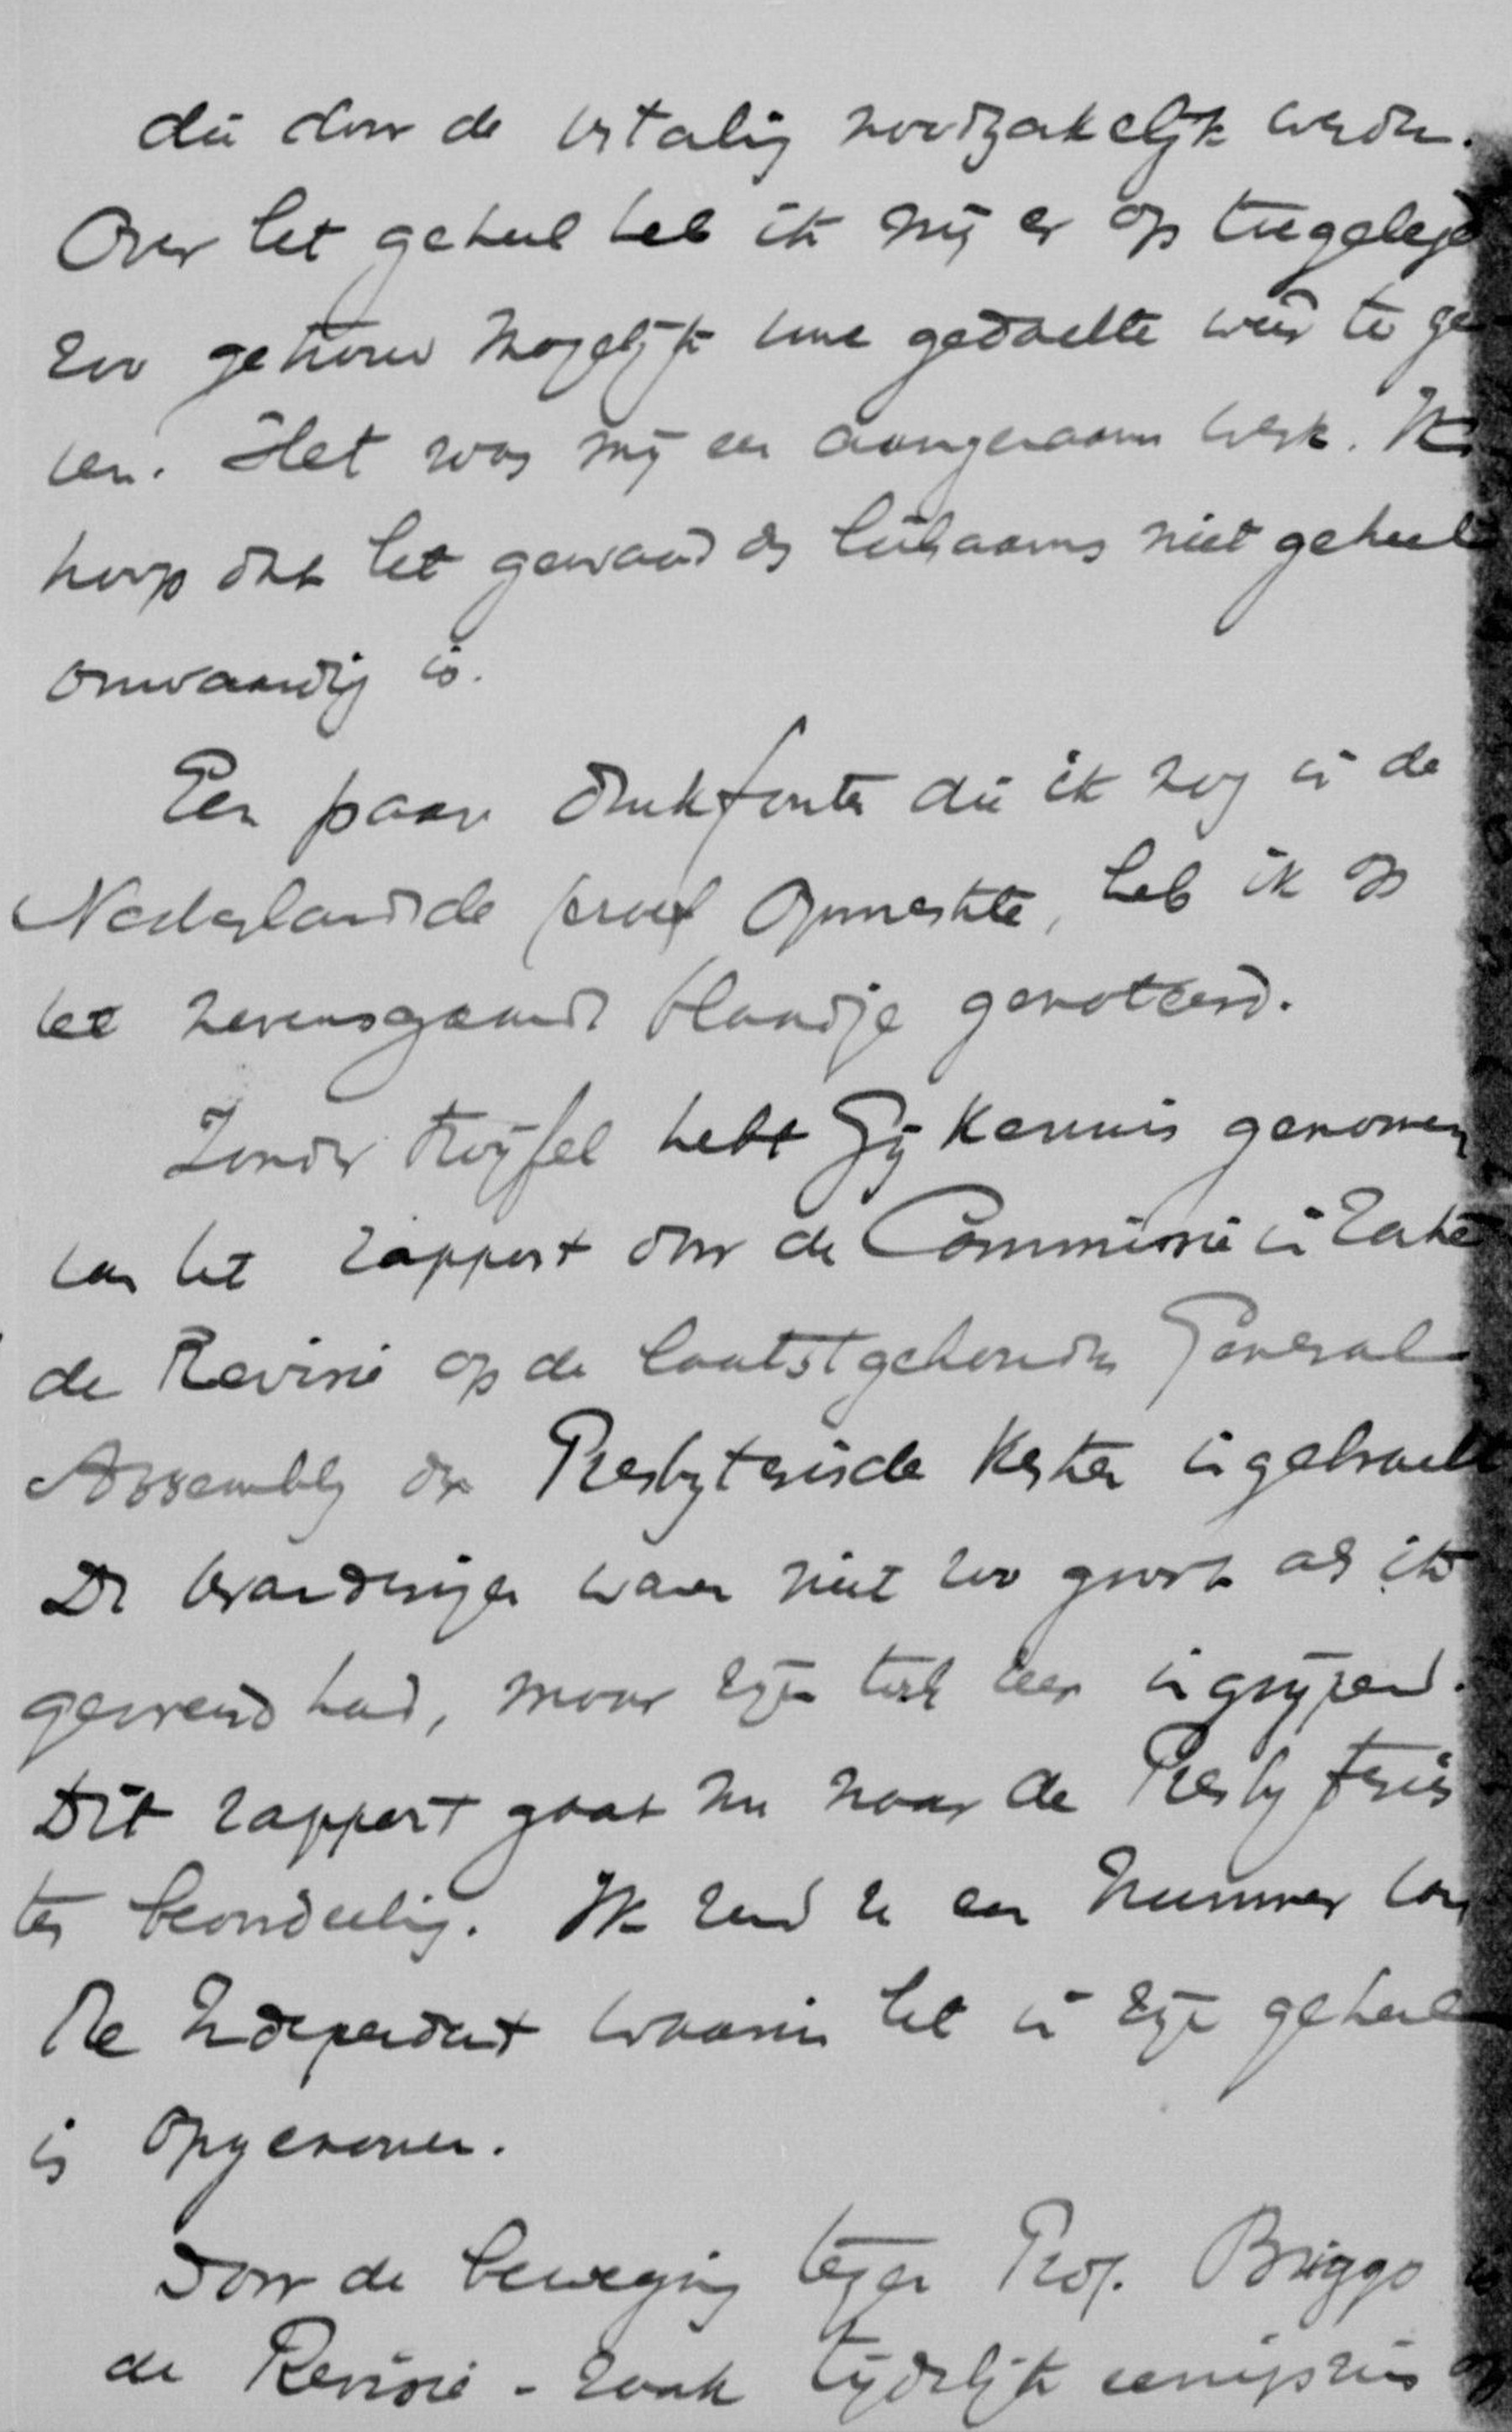 die door de vertaling noodzakelijk werden.
Over het geheel heb ik mij er op toegelegd
zoo getrouw mogelijk uwe gedachte weer te ge
ven. Het was mij een aangenaam werk. Ik
hoop dat het gewaad des lichaams niet geheel
onwaardig is.
Een paar drukfouten die ik nog in de
Nederlandsche proef opmerkte, heb ik op
het nevensgaande blaadje genoteerd.
Zonder twijfel hebt Gij kennis genomen
van het rapport door de Commissie in zake
de Revisie op de laatstgehouden General
Assembly der Presbyterische Kerken ingebracht
De veranderingen waren niet zoo groot als ik
gevreesd had, maar zijn toch zeer ingrijpend.
Dit rapport gaat nu naar de Presbyteries
ter beoordeeling. Ik zend U een nummer van
The Independent waarin het in zijn geheel
is opgenomen.
Door de beweging tegen Prof. Briggs is
de Revisie-zaak tijdelijk eenigszins op